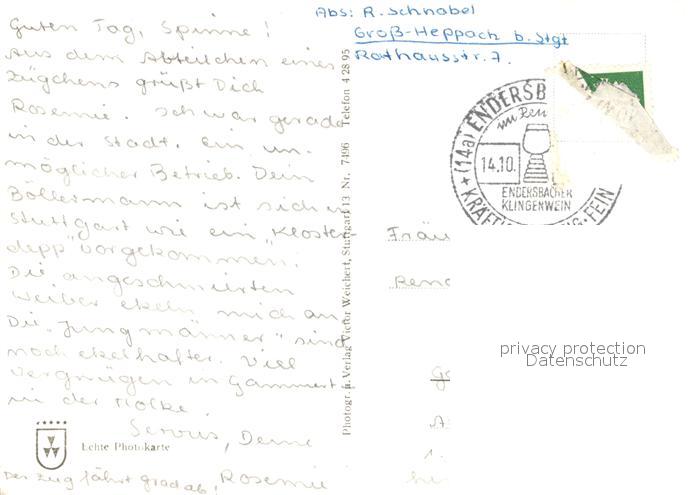 Guten Tag, Spinne!
Aus dem Abteilchen eines
Zügchens grüßt Dich
Rosemie. Ich war gerade
in der Stadt. Ein un-
möglicher Betrieb. Dein
Böllermann ist sich in
Stuttgart wie ein "Kloster-
depp" vorgekommen!
Die angeschmierten
Weiber ekeln mich an
Die "Jungmänner" sind
noch ekelhafter. Viel
Vergnügen in Gammert-
in der Molke.
Servus, Deine
Rosemie
Der Zug fährt grad ab!
Echte Photokarte
Photogr. u. Verlag Victor Weichert, Stuttgart 13 Nr. 7496 Telefon 4 28 95
Abs: R. Schnabel
Groß-Heppach b. Stgt
Rathausstr. 7.
(14a) ENDERSB
im Rem
14.10.
ENDERSBACHER
KLINGENWEIN
KRÄFTI G·FEIN
Fräu
Ren
privacy protection
Datenschutz